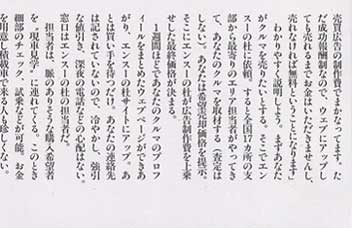 売買広告の制作費でまかなってます。した
だ成功報酬制なので、ウェブにアップし
ても売れるまでお金はいただきませんし、
売れなければ無料ということになります」
　わかりやすく説明しよう。まずあなた
がクルマを売りたいとする。そこでエン
スーの杜に依頼。すると全国17カ所の支
部から最寄りのエリア担当者がやってき
て、あなたのクルマを取材する（査定は
しない）。あなたは希望売却価格を提示、
そこにエンスーの杜が広告制作費を上乗
せした最終価格が決まる。
　1週間ほどであなたのクルマのプロフ
ィールをまとめたウェブページができあ
がり、エンスーの杜サイトにアップ。あ
とは買い手を待つだけ。あなたの連絡先
は記されていないので、冷やかし、強引
な値引き、深夜の電話などの心配はない。
窓口はエンスーの杜の担当者だ。
　担当者は、脈のありそうな購入希望者
を〝現車見学〟に連れてくる。このとき
細部のチェック、試乗などが可能。お金
を用意し積載車で来る人も珍しくない。